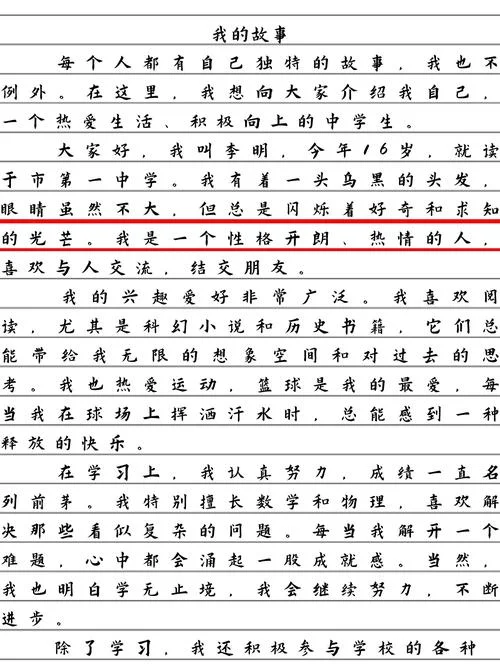 我的故事
每个人都有自己独特的故事，我也不
例外。在这里，我想向大家介绍我自己，
一个热爱生活、积极向上的中学生。
大家好，我叫李明，今年16岁，就读
于市第一中学。我有着一头乌黑的头发，
眼睛虽然不大，但总是闪烁着好奇和求知
的光芒。我是一个性格开朗、热情的人，
喜欢与人交流，结交朋友。
我的兴趣爱好非常广泛。我喜欢阅
读，尤其是科幻小说和历史书籍，它们总
能带给我无限的想象空间和对过去的思
考。我也热爱运动，篮球是我的最爱，每
当我在球场上挥洒汗水时，总能感到一种
释放的快乐。
在学习上，我认真努力，成绩一直名
列前茅。我特别擅长数学和物理，喜欢解
决那些看似复杂的问题。每当我解开一个
难题，心中都会涌起一股成就感。当然，
我也明白学无止境，我会继续努力，不断
进步。
除了学习，我还积极参与学校的各种